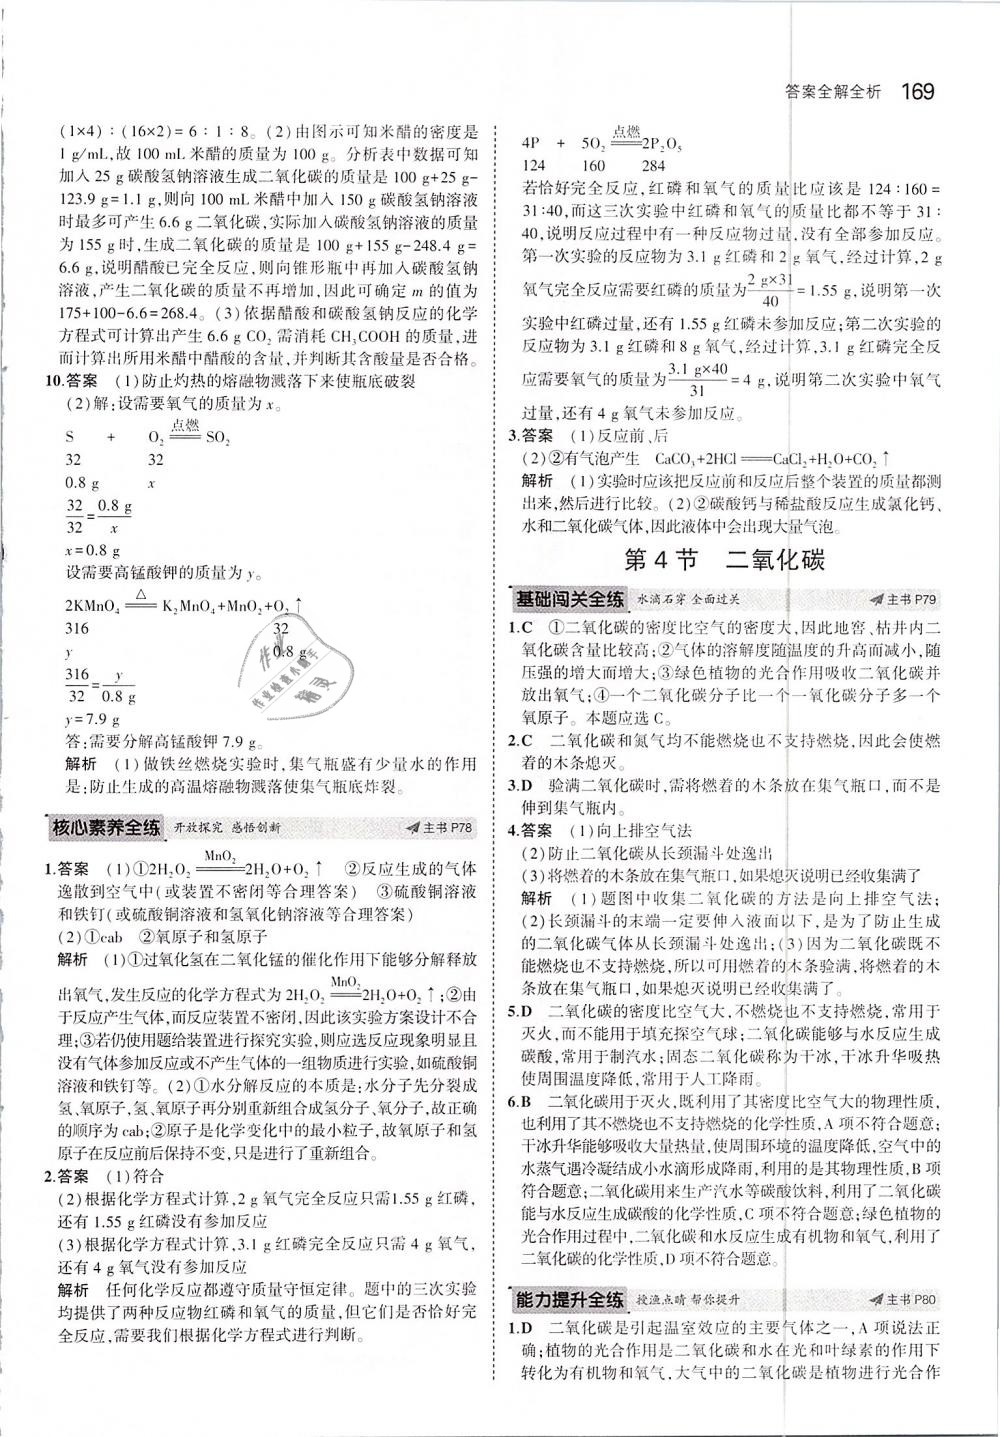 答案全解全析 169
(1×4)∶(16×2)=6∶1∶8。(2)由图示可知米醋的密度是
1 g/mL,故 100 mL 米醋的质量为 100 g。分析表中数据可知
加入 25 g 碳酸氢钠溶液生成二氧化碳的质量是 100 g+25 g-
123.9 g=1.1 g,则向 100 mL 米醋中加入 150 g 碳酸氢钠溶液
时最多可产生 6.6 g 二氧化碳,实际加入碳酸氢钠溶液的质量
为 155 g 时,生成二氧化碳的质量是 100 g+155 g-248.4 g=
6.6 g,说明醋酸已完全反应,则向锥形瓶中再加入碳酸氢钠
溶液,产生二氧化碳的质量不再增加,因此可确定 m 的值为
175+100-6.6=268.4。(3)依据醋酸和碳酸氢钠反应的化学
方程式可计算出产生 6.6 g CO₂ 需消耗 CH₃COOH 的质量,进
而计算出所用米醋中醋酸的含量,并判断其含酸量是否合格。
10.答案 (1)防止灼热的熔融物溅落下来使瓶底破裂
(2)解:设需要氧气的质量为 x。
点燃
S + O₂══SO₂
32 32
0.8 g x
32/32=0.8 g/x
x=0.8 g
设需要高锰酸钾的质量为 y。
△
2KMnO₄══K₂MnO₄+MnO₂+O₂↑
316 32
y 0.8 g
316/32=y/0.8 g
y=7.9 g
答:需要分解高锰酸钾 7.9 g。
解析 (1)做铁丝燃烧实验时,集气瓶盛有少量水的作用
是:防止生成的高温熔融物溅落使集气瓶底炸裂。
核心素养全练 开放探究 感悟创新 主书 P78
1.答案 (1)①2H₂O₂ MnO₂══2H₂O+O₂↑ ②反应生成的气体
逸散到空气中(或装置不密闭等合理答案) ③硫酸铜溶液
和铁钉(或硫酸铜溶液和氢氧化钠溶液等合理答案)
(2)①cab ②氧原子和氢原子
解析 (1)①过氧化氢在二氧化锰的催化作用下能够分解释放
出氧气,发生反应的化学方程式为 2H₂O₂ MnO₂══2H₂O+O₂↑;②由
于反应产生气体,而反应装置不密闭,因此该实验方案设计不合
理;③若仍使用题给装置进行探究实验,则应选反应现象明显且
没有气体参加反应或不产生气体的一组物质进行实验,如硫酸铜
溶液和铁钉等。(2)①水分解反应的本质是:水分子先分裂成
氢、氧原子,氢、氧原子再分别重新组合成氢分子、氧分子,故正确
的顺序为 cab;②原子是化学变化中的最小粒子,故氧原子和氢
原子在反应前后保持不变,只是进行了重新组合。
2.答案 (1)符合
(2)根据化学方程式计算,2 g 氧气完全反应只需1.55 g 红磷,
还有 1.55 g 红磷没有参加反应
(3)根据化学方程式计算,3.1 g 红磷完全反应只需 4 g 氧气,
还有 4 g 氧气没有参加反应
解析 任何化学反应都遵守质量守恒定律。题中的三次实验
均提供了两种反应物红磷和氧气的质量,但它们是否恰好完
全反应,需要我们根据化学方程式进行判断。
点燃
4P + 5O₂══2P₂O₅
124 160 284
若恰好完全反应,红磷和氧气的质量比应该是 124∶160=
31∶40,而这三次实验中红磷和氧气的质量比都不等于 31∶
40,说明反应过程中有一种反应物过量,没有全部参加反应。
第一次实验的反应物为 3.1 g 红磷和 2 g 氧气,经过计算,2 g
氧气完全反应需要红磷的质量为2 g×31/40=1.55 g,说明第一次
实验中红磷过量,还有 1.55 g 红磷未参加反应;第二次实验的
反应物为 3.1 g 红磷和 8 g 氧气,经过计算,3.1 g 红磷完全反
应需要氧气的质量为3.1 g×40/31=4 g,说明第二次实验中氧气
过量,还有 4 g 氧气未参加反应。
3.答案 (1)反应前、后
(2)②有气泡产生 CaCO₃+2HCl══CaCl₂+H₂O+CO₂↑
解析 (1)实验时应该把反应前和反应后整个装置的质量都测
出来,然后进行比较。(2)②碳酸钙与稀盐酸反应生成氯化钙、
水和二氧化碳气体,因此液体中会出现大量气泡。
第 4 节 二氧化碳
基础闯关全练 水滴石穿 全面过关 主书 P79
1.C ①二氧化碳的密度比空气的密度大,因此地窖、枯井内二
氧化碳含量比较高;②气体的溶解度随温度的升高而减小,随
压强的增大而增大;③绿色植物的光合作用吸收二氧化碳并
放出氧气;④一个二氧化碳分子比一个一氧化碳分子多一个
氧原子。本题应选 C。
2.C 二氧化碳和氮气均不能燃烧也不支持燃烧,因此会使燃
着的木条熄灭。
3.D 验满二氧化碳时,需将燃着的木条放在集气瓶口,而不是
伸到集气瓶内。
4.答案 (1)向上排空气法
(2)防止二氧化碳从长颈漏斗处逸出
(3)将燃着的木条放在集气瓶口,如果熄灭说明已经收集满了
解析 (1)题图中收集二氧化碳的方法是向上排空气法;
(2)长颈漏斗的末端一定要伸入液面以下,是为了防止生成
的二氧化碳气体从长颈漏斗处逸出;(3)因为二氧化碳既不
能燃烧也不支持燃烧,所以可用燃着的木条验满,将燃着的木
条放在集气瓶口,如果熄灭说明已经收集满了。
5.D 二氧化碳的密度比空气大,不燃烧也不支持燃烧,常用于
灭火,而不能用于填充探空气球;二氧化碳能够与水反应生成
碳酸,常用于制汽水;固态二氧化碳称为干冰,干冰升华吸热
使周围温度降低,常用于人工降雨。
6.B 二氧化碳用于灭火,既利用了其密度比空气大的物理性质,
也利用了其不燃烧也不支持燃烧的化学性质,A 项不符合题意;
干冰升华能够吸收大量热量,使周围环境的温度降低,空气中的
水蒸气遇冷凝结成小水滴形成降雨,利用的是其物理性质,B 项
符合题意;二氧化碳用来生产汽水等碳酸饮料,利用了二氧化碳
能与水反应生成碳酸的化学性质,C 项不符合题意;绿色植物的
光合作用过程中,二氧化碳和水反应生成有机物和氧气,利用了
二氧化碳的化学性质,D 项不符合题意。
能力提升全练 授渔点睛 帮你提升 主书 P80
1.D 二氧化碳是引起温室效应的主要气体之一,A 项说法正
确;植物的光合作用是二氧化碳和水在光和叶绿素的作用下
转化为有机物和氧气,大气中的二氧化碳是植物进行光合作